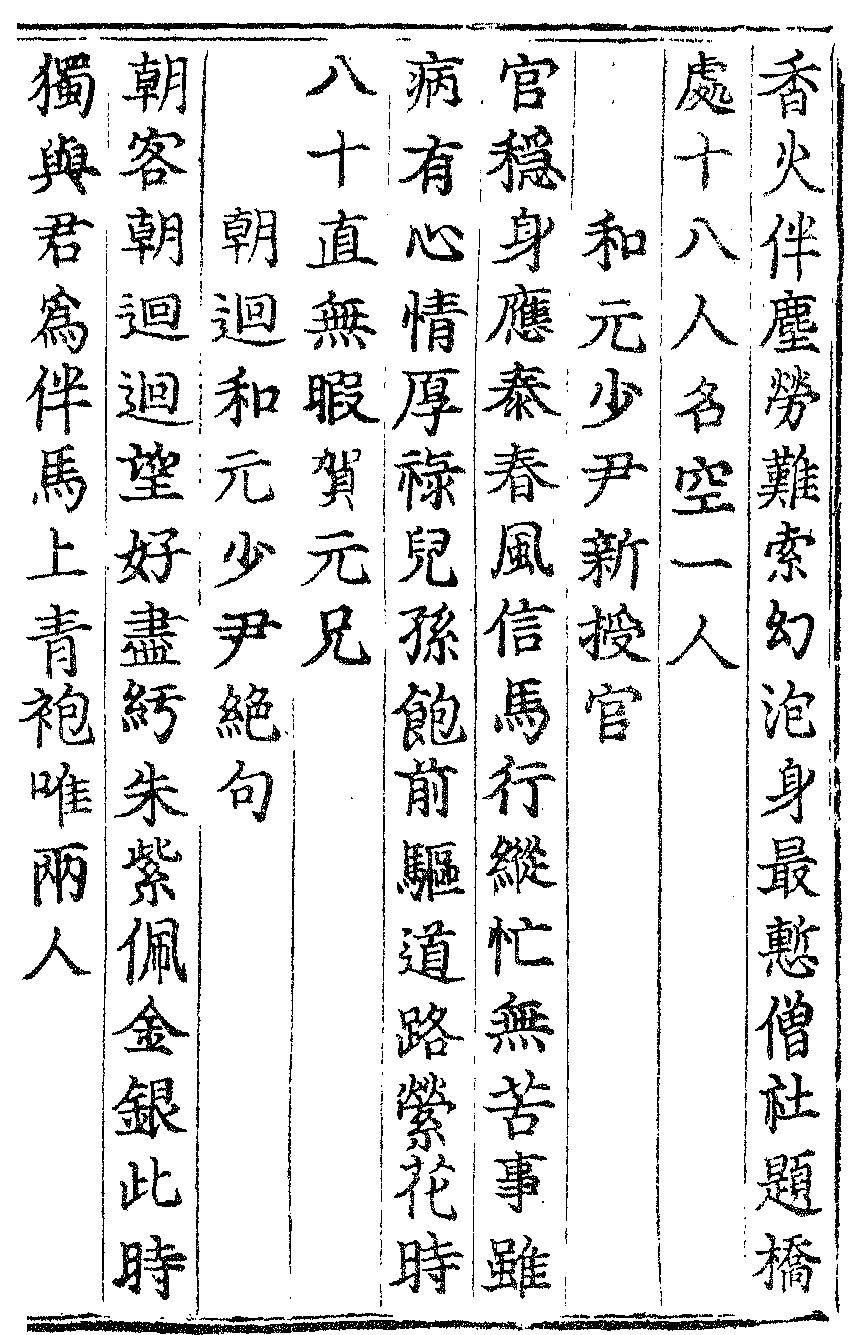 香火伴塵勞難索幻泡身最慙僧社題橋
處十八人名空一人
和元少尹新授官
官穩身應泰春風信馬行縱忙無苦事雖
病有心情厚祿兒孫飽前驅道路縈花時
八十直無暇賀元兄
朝迴和元少尹絕句
朝客朝迴迴望好盡紆朱紫佩金銀此時
獨與君爲伴馬上青袍唯兩人